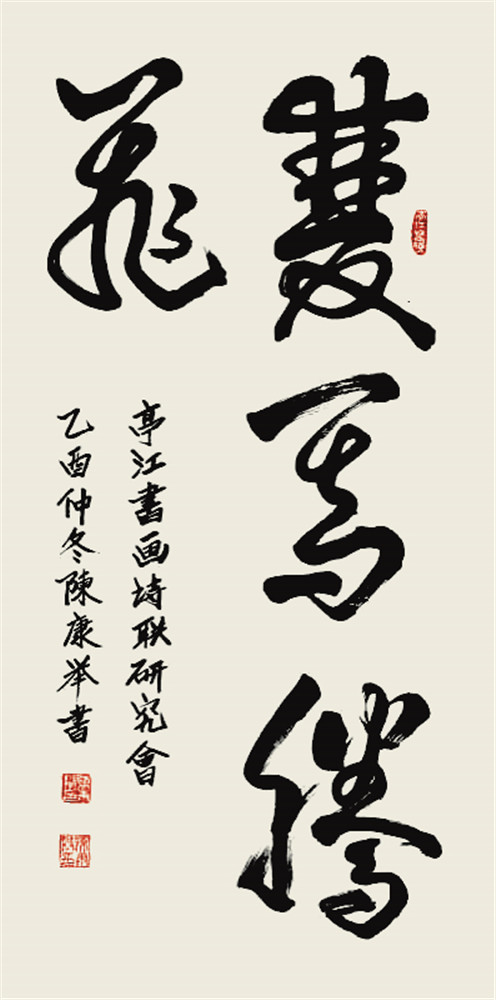 雙馬騰
飛
亭江書画诗联研究會
乙酉仲冬陳康举書